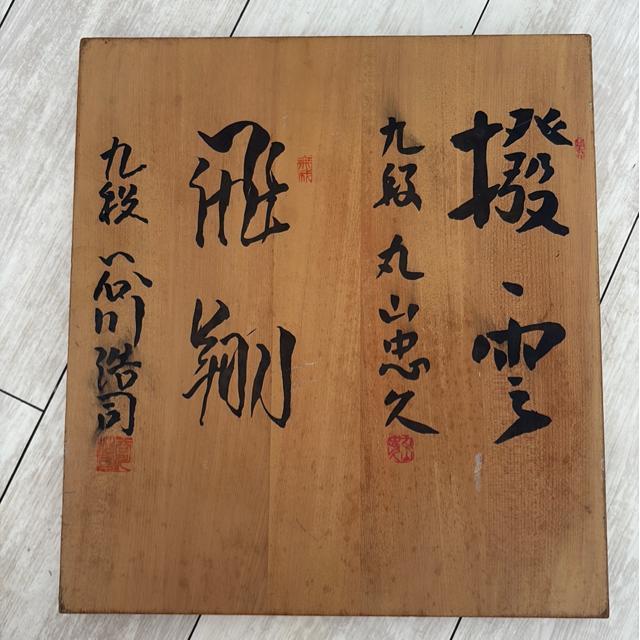 撥雲
九段 丸山忠久
飛翔
九段 谷川浩司